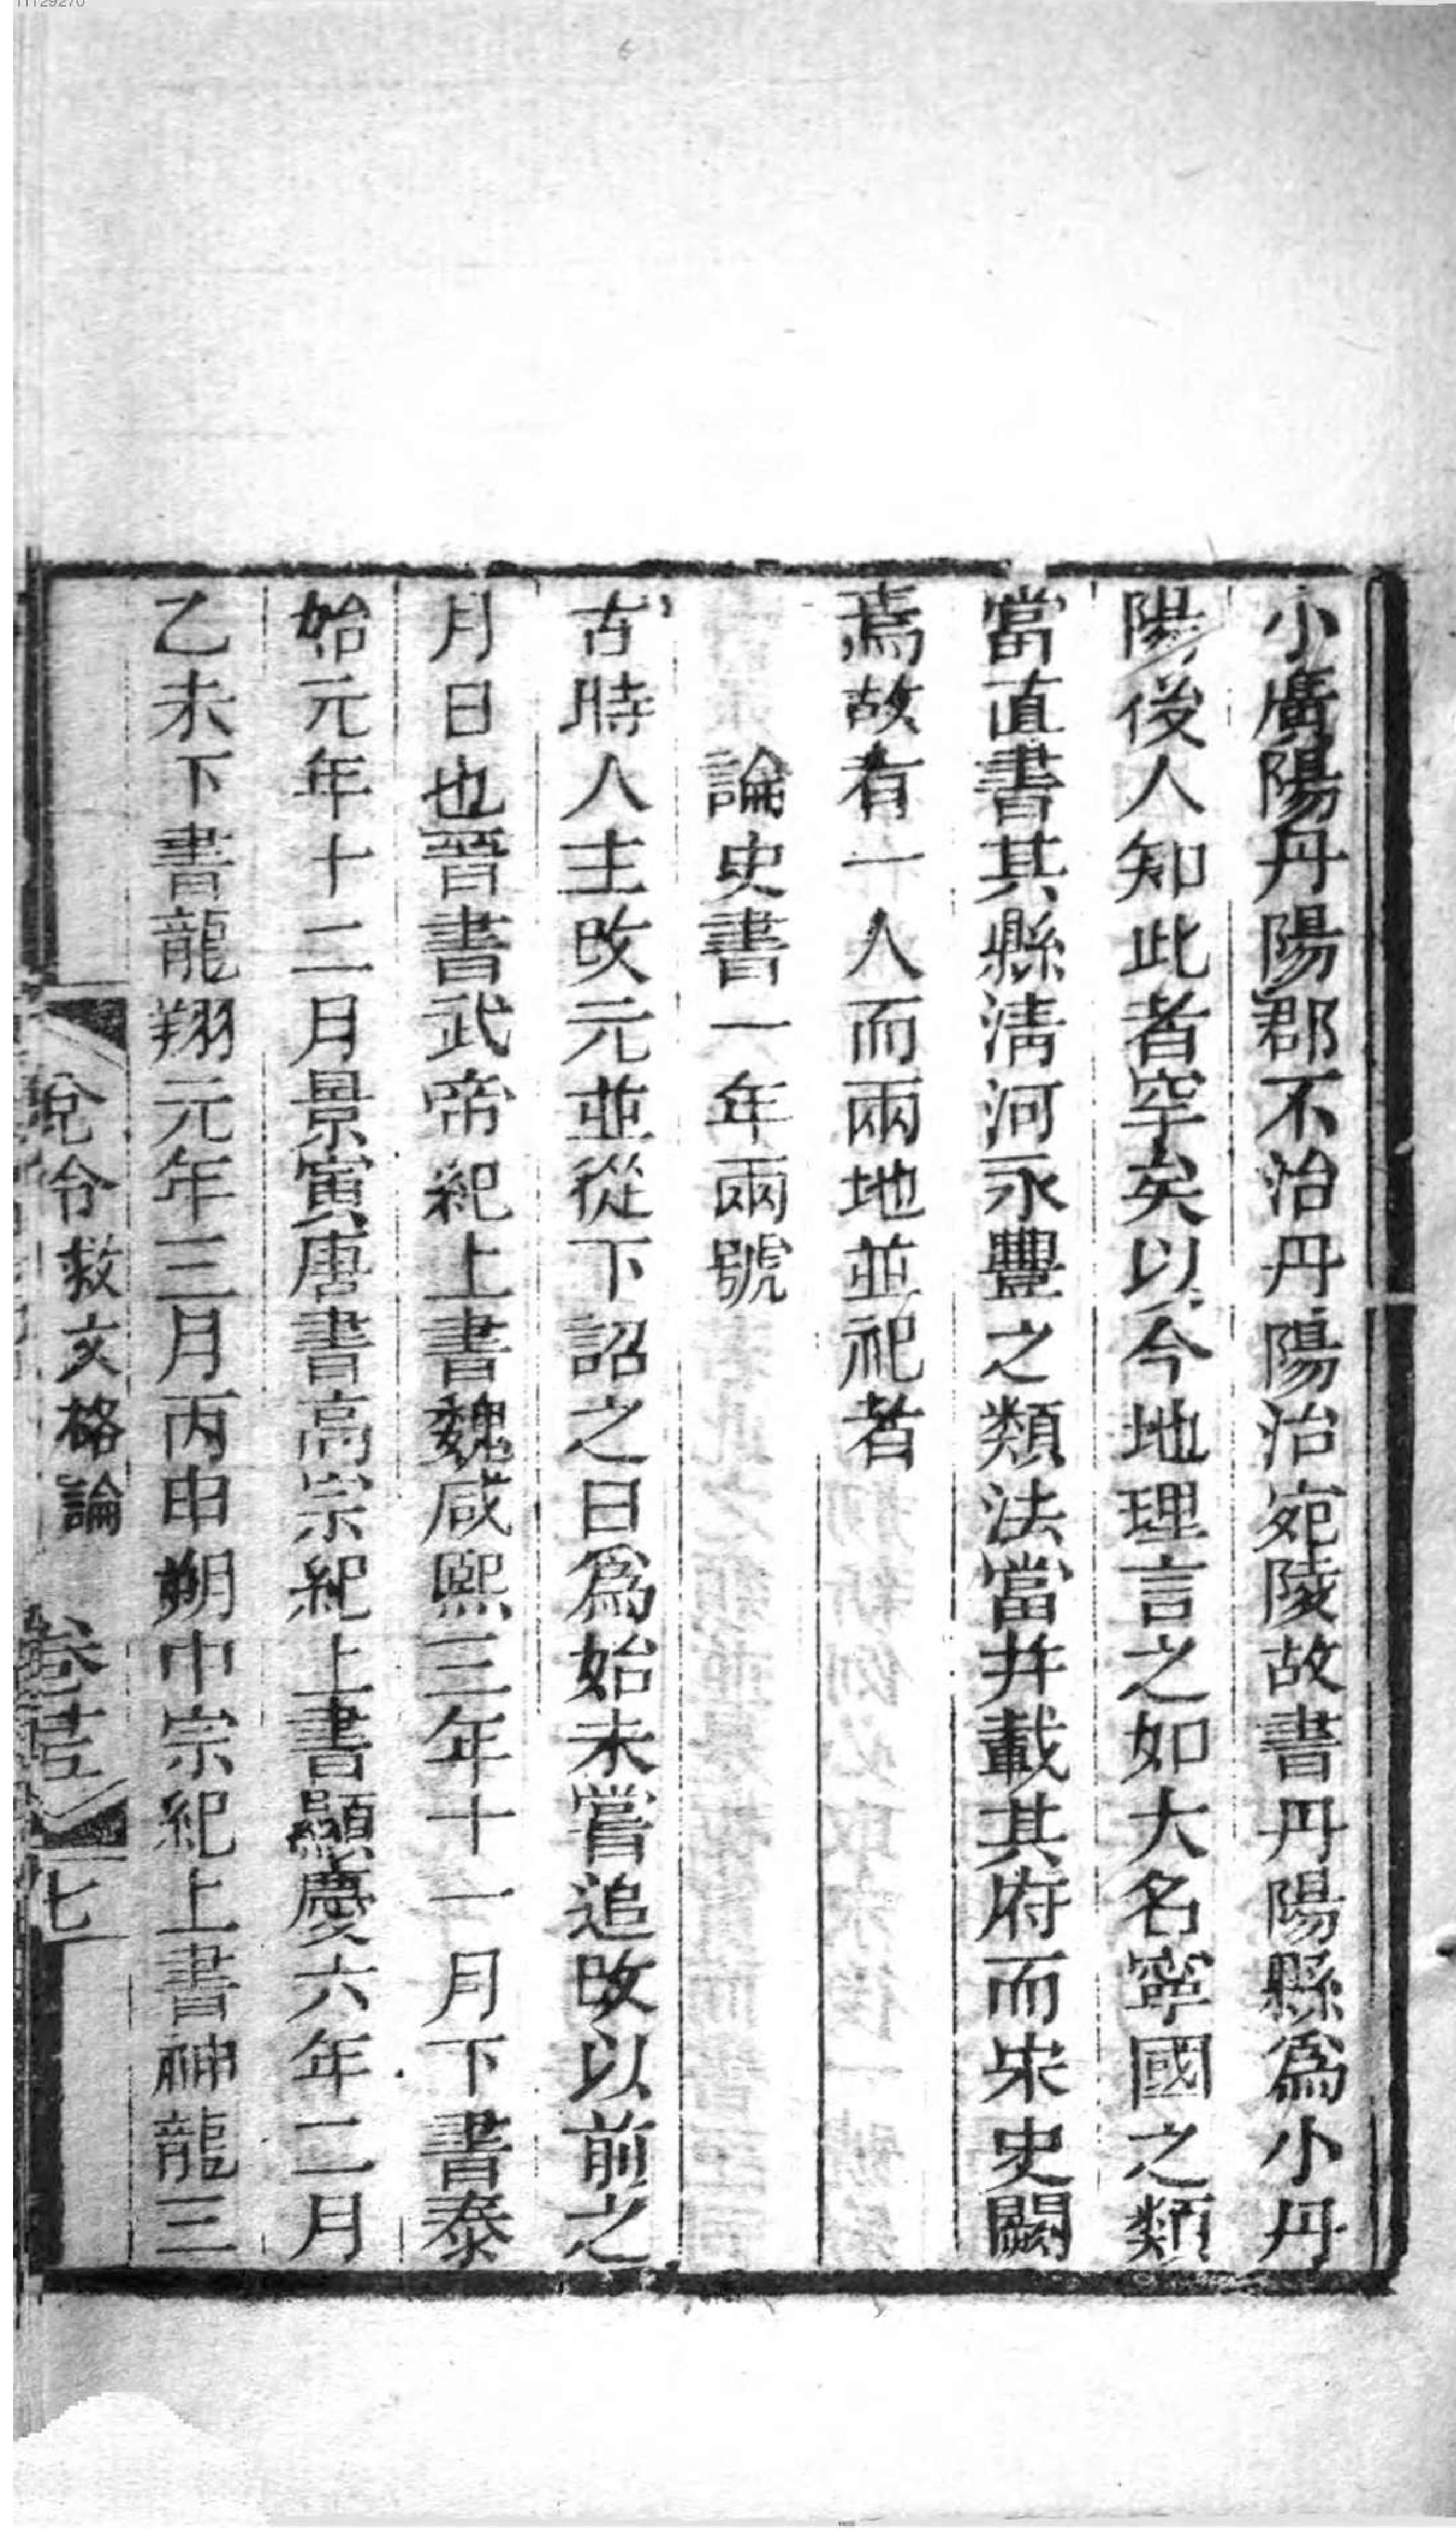 小廣陽丹陽郡不治丹陽治宛陵故書丹陽縣爲小丹
陽後人知此者罕矣以今地理言之如大名寧國之類
當直書其縣淸河永豐之類法當并載其府而宋史闕
焉故有一人而兩地並祀者
論史書一年兩號
古時人主改元並從下詔之日爲始未嘗追改以前之
月日也晉書武帝紀上書魏咸熙三年十一月下書泰
始元年十二月景寅唐書高宗紀上書顯慶六年二月
乙未下書龍翔元年三月丙申朔中宗紀上書神龍三
兌令救文格論
七